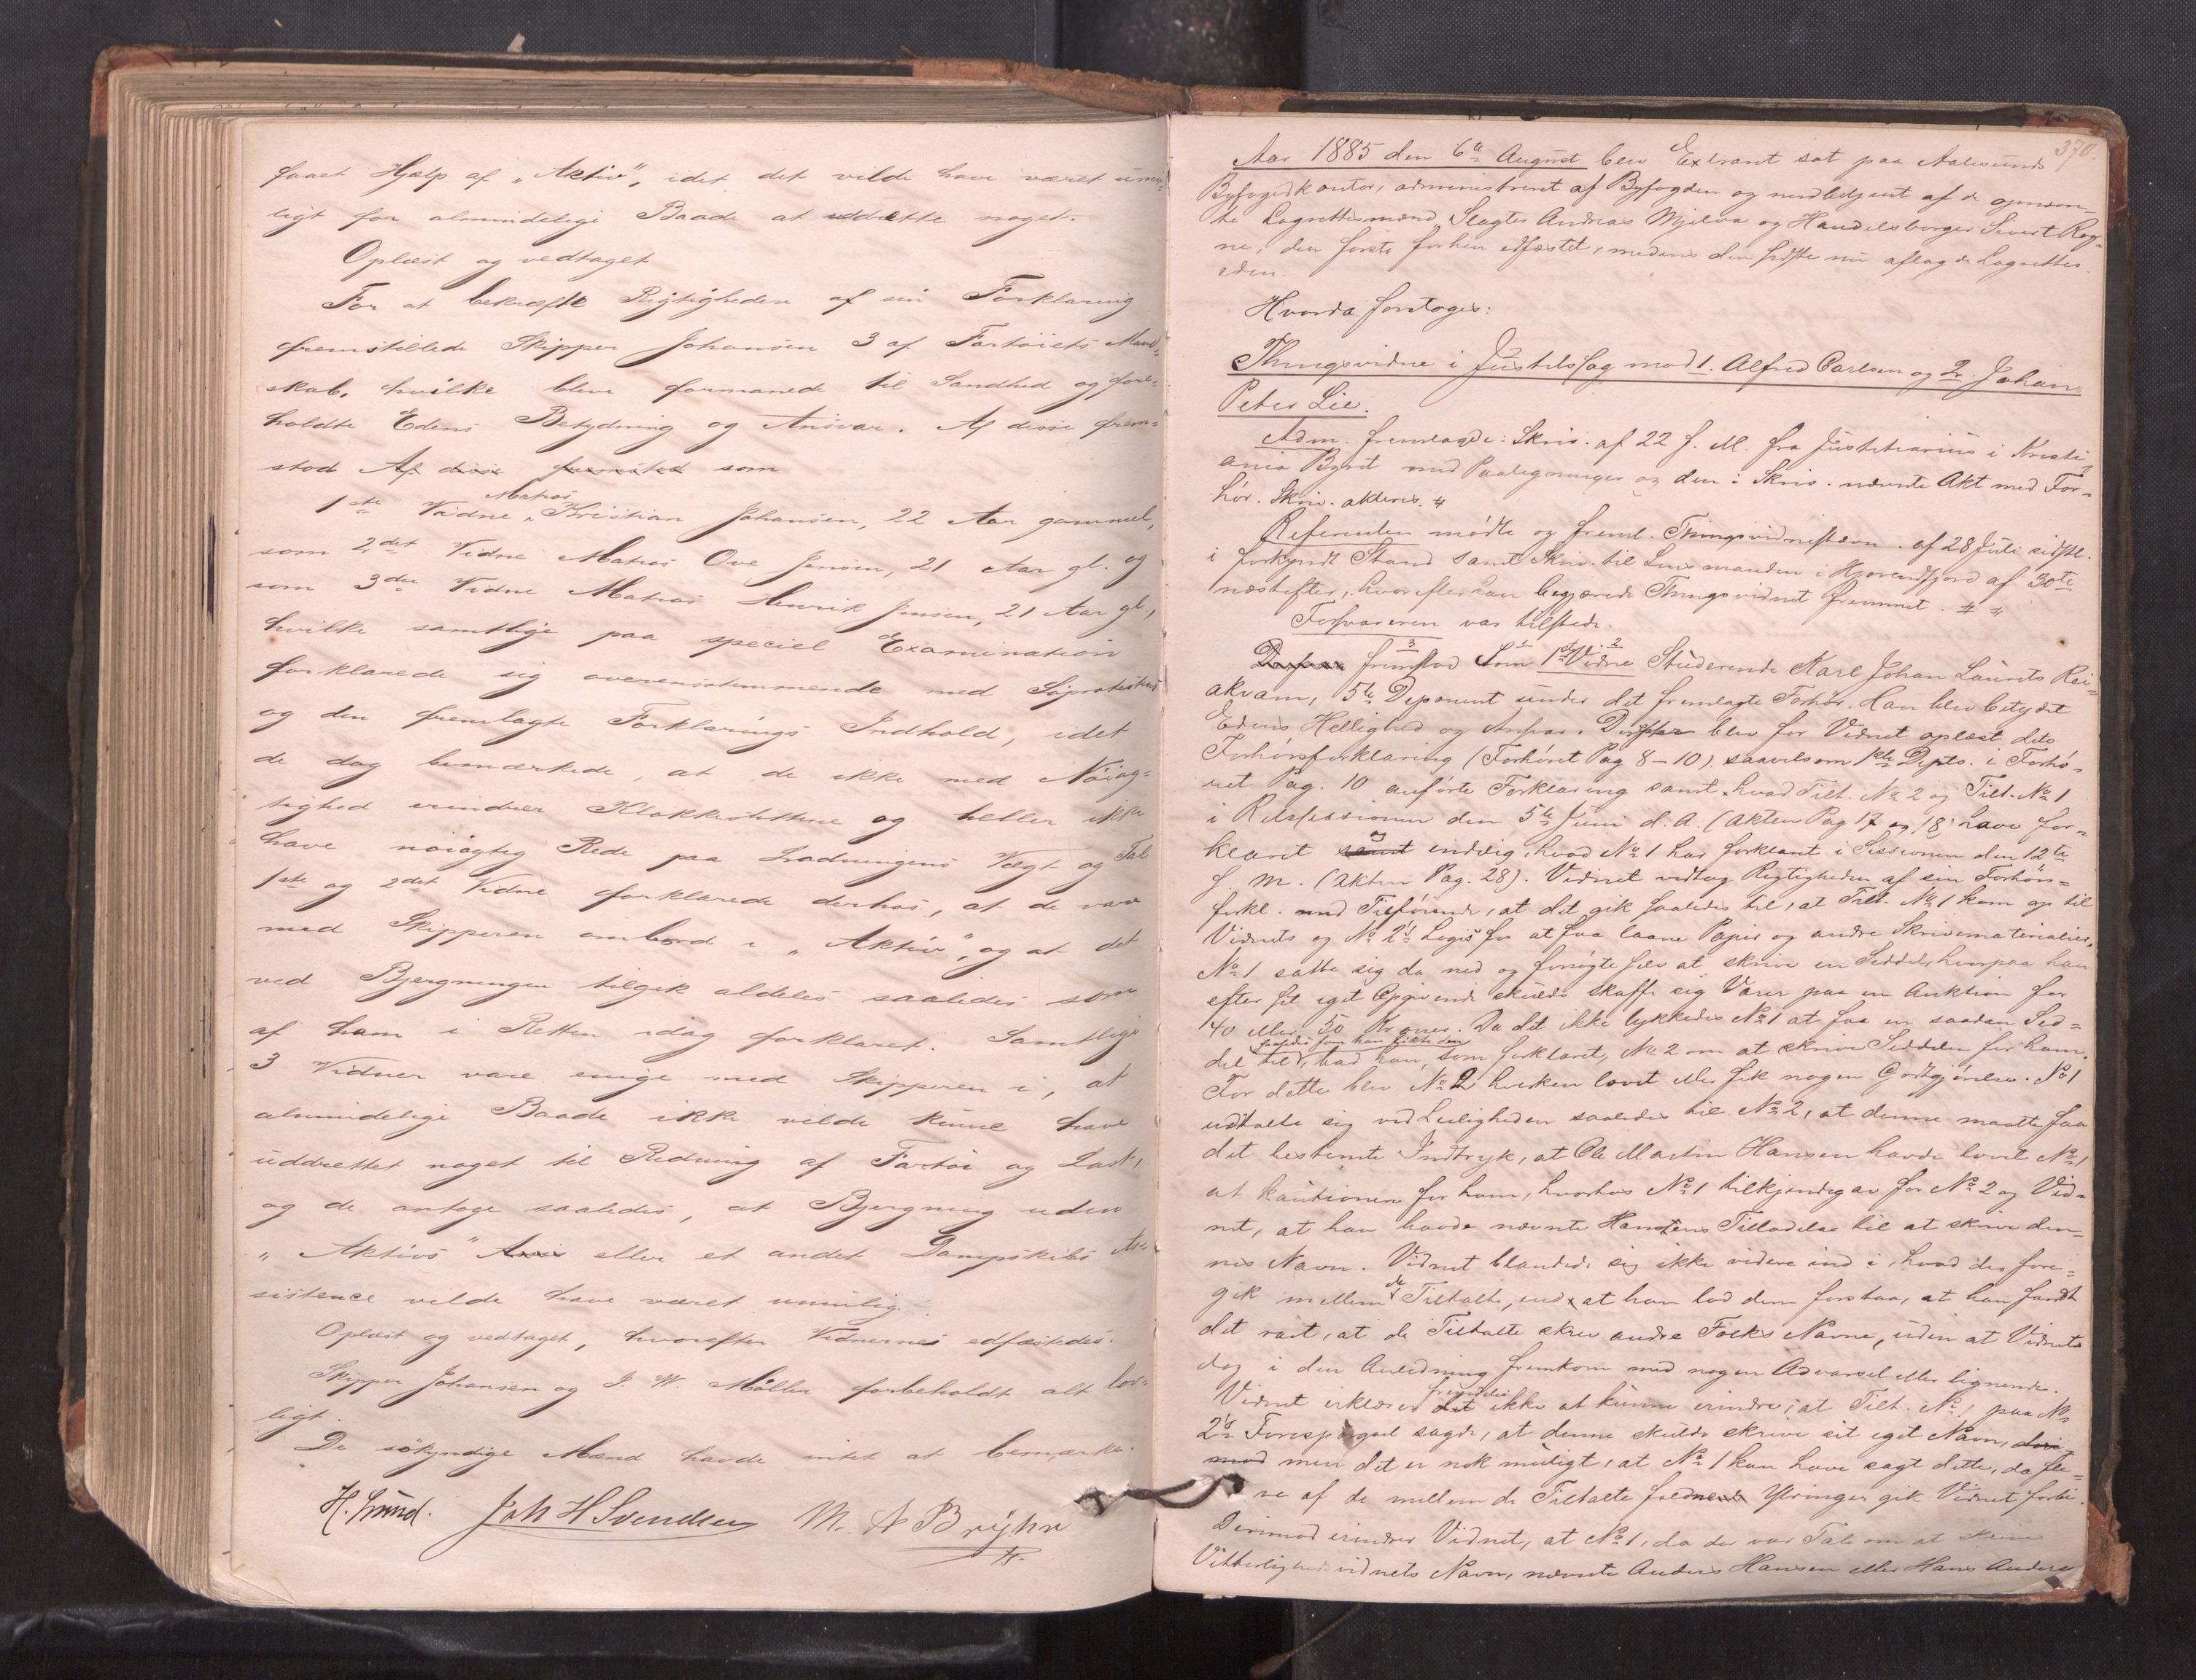 faaet Hjælp af „Aktiv“, idet det vilde have været umu-
ligt for almindelige Baade at uddrette noget.
Oplæst og vedtaget
For at bekræfte Rigtigheden af sin Forklaring
fremstillede Skipper Johansen 3 af Fartøiets Mand-
skab, hvilke bleve formanede til Sandhed og fore-
holdte Edens Betydning og Ansvar. Af disse frem-
stod Af disse fremstod som
1ste Vidne Matros Kristian Johansen, 22 Aar gammel,
som 2det Vidne Matros Ove Jensen, 21 Aar gl. og
som 3die Vidne Matros Henrik Jensen, 21 Aar gl.,
hvilke samtlige paa speciel Examination
forklarede sig overensstemmende med Søprotestens
og den fremlagte Forklarings Indhold, idet
de dog bemærkede, at de ikke med Nøiag-
tighed erindrer Klokkeslettene og heller ikke
have nøiagtig Rede paa Ladningens Vægt og Tal
1ste og 2det Vidne forklarede derhos, at de var
med Skipperen ombord i „Aktiv“, og at det
ved Bjergningen tilgik aldeles saaledes som
af ham i Retten idag forklaret. Samtlige
3 Vidner vare enige med Skipperen i, at
almindelige Baade ikke vilde kunne have
uddrettet noget til Redning af Fartøi og Last,
og de antage saaledes, at Bjergning uden
„Aktivs“ Assis eller et andet Dampskibs As-
sistence vilde have været umulig.
Oplæst og vedtaget, hvorefter Vidnernes edfæstedes.
Skipper Johansen og J. W. Møller forbeholdt alt lov-
ligt.
De søkyndige Mænd havde intet at bemærke.
H. Lund. Joh H Svendsen M. A Bryhn
370.
Aar 1885 den 6te August blev Extraret sat paa Aalesunds
Byfogedkontor, administreret af Byfogden og medbetjent af de opnævn-
te Lagrettesmænd, Slagter Andreas Mjelva og Handelsborger Sivert Rog-
ne, den første forhen edfæstet, medens den sidste nu aflagde Lagrettes-
eden.
Hvorda foretoges:
Thingsvidne i Justitssag mod 1. Alfred Carlsen og 2. Johan
Peter Lie.
Adm. fremlagde: Skriv. af 22 f. M. fra Justitiarius i Kristi-
ania Byret med Paategninger og den i Skriv. nævnte Akt med For-
hør. Skriv. akteres.
Referenten mødte og freml. Thingsvidnestævn. af 28 Juli sidstl.
i forkyndt Stand samt Skriv. til Lensmanden i Hjørendfjord af 30te
næstefter, hvorefter han begjærede Thingsvidnet fremmet.
Forsvareren var tilstede.
fremstod Som 1ste Vidne Studerende Karl Johan Laurits Rei-
akvam, 5te Deponent under det fremlagte Forhør. Han blev betydet
Edens Hellighed og Ansvar. Derefter blev for Vidnet oplæst dets
Forhørsforklaring (Forhøret Pag 8-10) saavelsom 1ste Depts. i Forhø-
ret Pag. 10 anførte Forklaring samt hvad Tilt. No 2 og Tilt. No 1
i Retssessionen den 5te Juni d. A. (Akten Pag 17 og 18) have for-
klaret samt og endelig, hvad No 1 har forklaret i Sessionen den 12te
f. M. (Akten Pag. 28). Vidnet vedtog Rigtigheden af sin Forhørs-
forkl. med Tilføiende, at det gik saaledes til, at Tilt. No 1 kom op til
Vidnets og No 2's Logis for at faa laane Papir og andre Skrivematerialier.
No 1 satte sig da ned og forsøgte selv at skrive en Seddel, hvorpaa han
efter sit eget Opgivende skulde skaffe sig Varer paa en Auktion for
40 eller 50 Kroner. Da det ikke lykkedes No 1 at faa en saadan Sed-
del til, saaledes som han vilde den, bad han, som forklaret, No 2 om at skrive Seddelen for ham.
For dette blev No 2 hverken lovet eller fik nogen Godtgjørelse. No 1
udtalte sig ved Leiligheden saaledes til No 2, at denne maatte faa
det bestemte Indtryk, at Ole Martin Hansen havde lovet No 1
at kautionere for ham, hvorhos No 1 tilkjendegav for No 2 og Vid-
net, at han havde nævnte Hansens Tilladelse til at skrive den-
nes Navn. Vidnet blandede sig ikke videre ind i, hvad der fore-
gik mellem de Tiltalte, end at han lod dem forstaa, at han fandt
det rart, at de Tiltalte skrev andre Folks Navne, uden at Vidnet
dog i den Anledning fremkom med nogen Advarsel eller lignende.
Vidnet erklærer fremdeles det ikke at kunne erindre, at Tilt. No 1 paa No
2's Forespørgsel sagde, at denne skulde skrive sit eget Navn, deri-
mod men det er nok muligt, at No 1 kan have sagt dette, da fle-
re af de mellem de Tiltalte faldne Ytringer gik Vidnet forbi.
Derimod erindrer Vidnet, at No 1, da der var Tale om at skrive
Vitterlighedsvidnets Navn, nævnte Anders Hansen eller Hans Anders